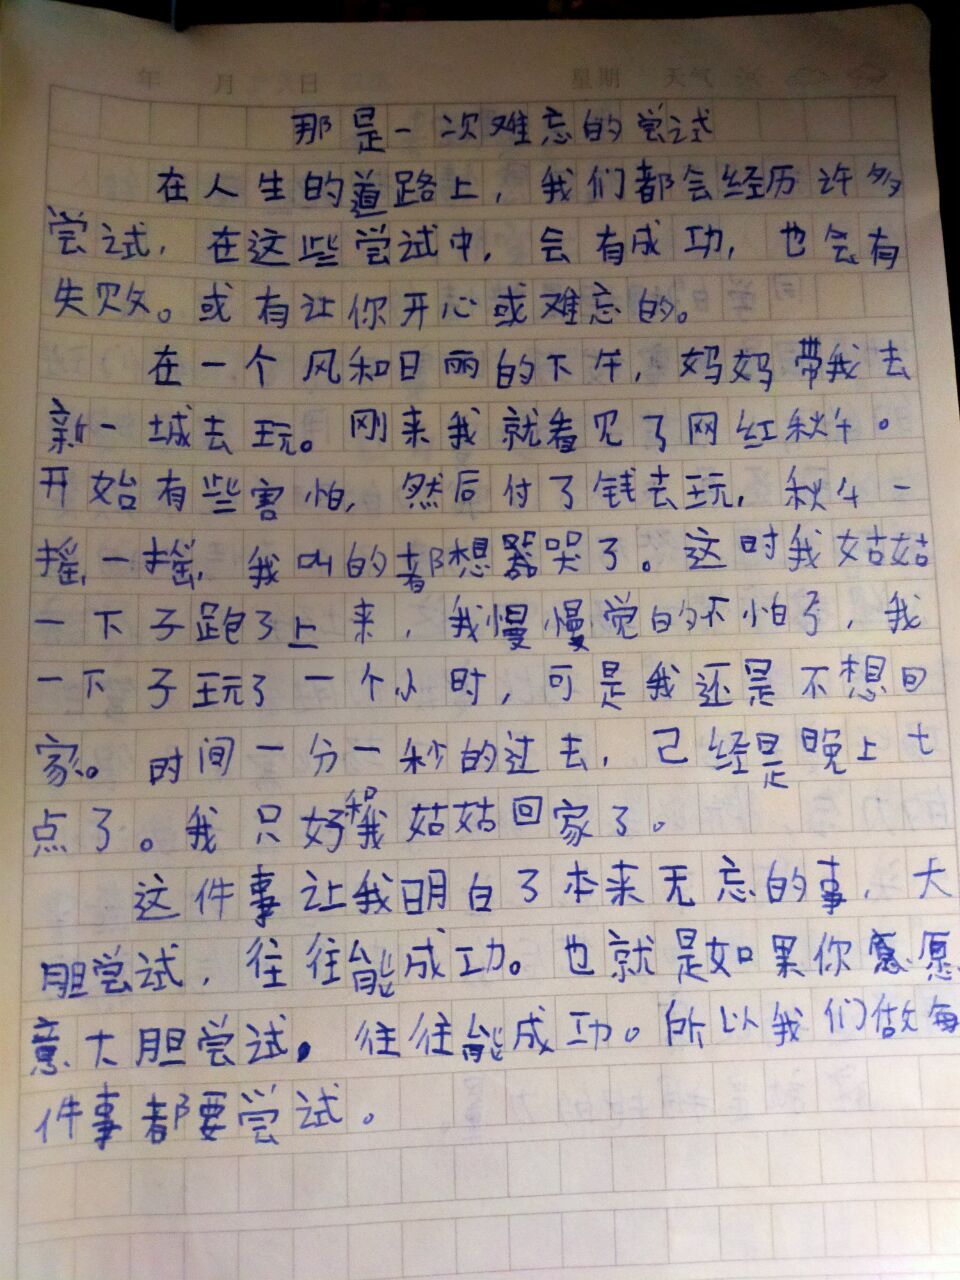 年 月 日 星期 天气
那是一次难忘的尝试
在人生的道路上，我们都会经历许多
尝试，在这些尝试中，会有成功，也会有
失败。或有让你开心或难忘的。
在一个风和日丽的下午，妈妈带我去
新一城去玩。刚来我就看见了网红秋千。
开始有些害怕，然后付了钱去玩，秋千一
摇一摇，我叫的都想哭了。这时我姑姑
一下子跑了上来，我慢慢觉的不怕了，我
一下子玩了一个小时，可是我还是不想回
家。时间一分一秒的过去，已经是晚上七
点了。我只好和我姑姑回家了。
这件事让我明白了本来无忘的事，大
胆尝试，往往能成功。也就是如果你愿
意大胆尝试，往往能成功。所以我们做每
件事都要尝试。